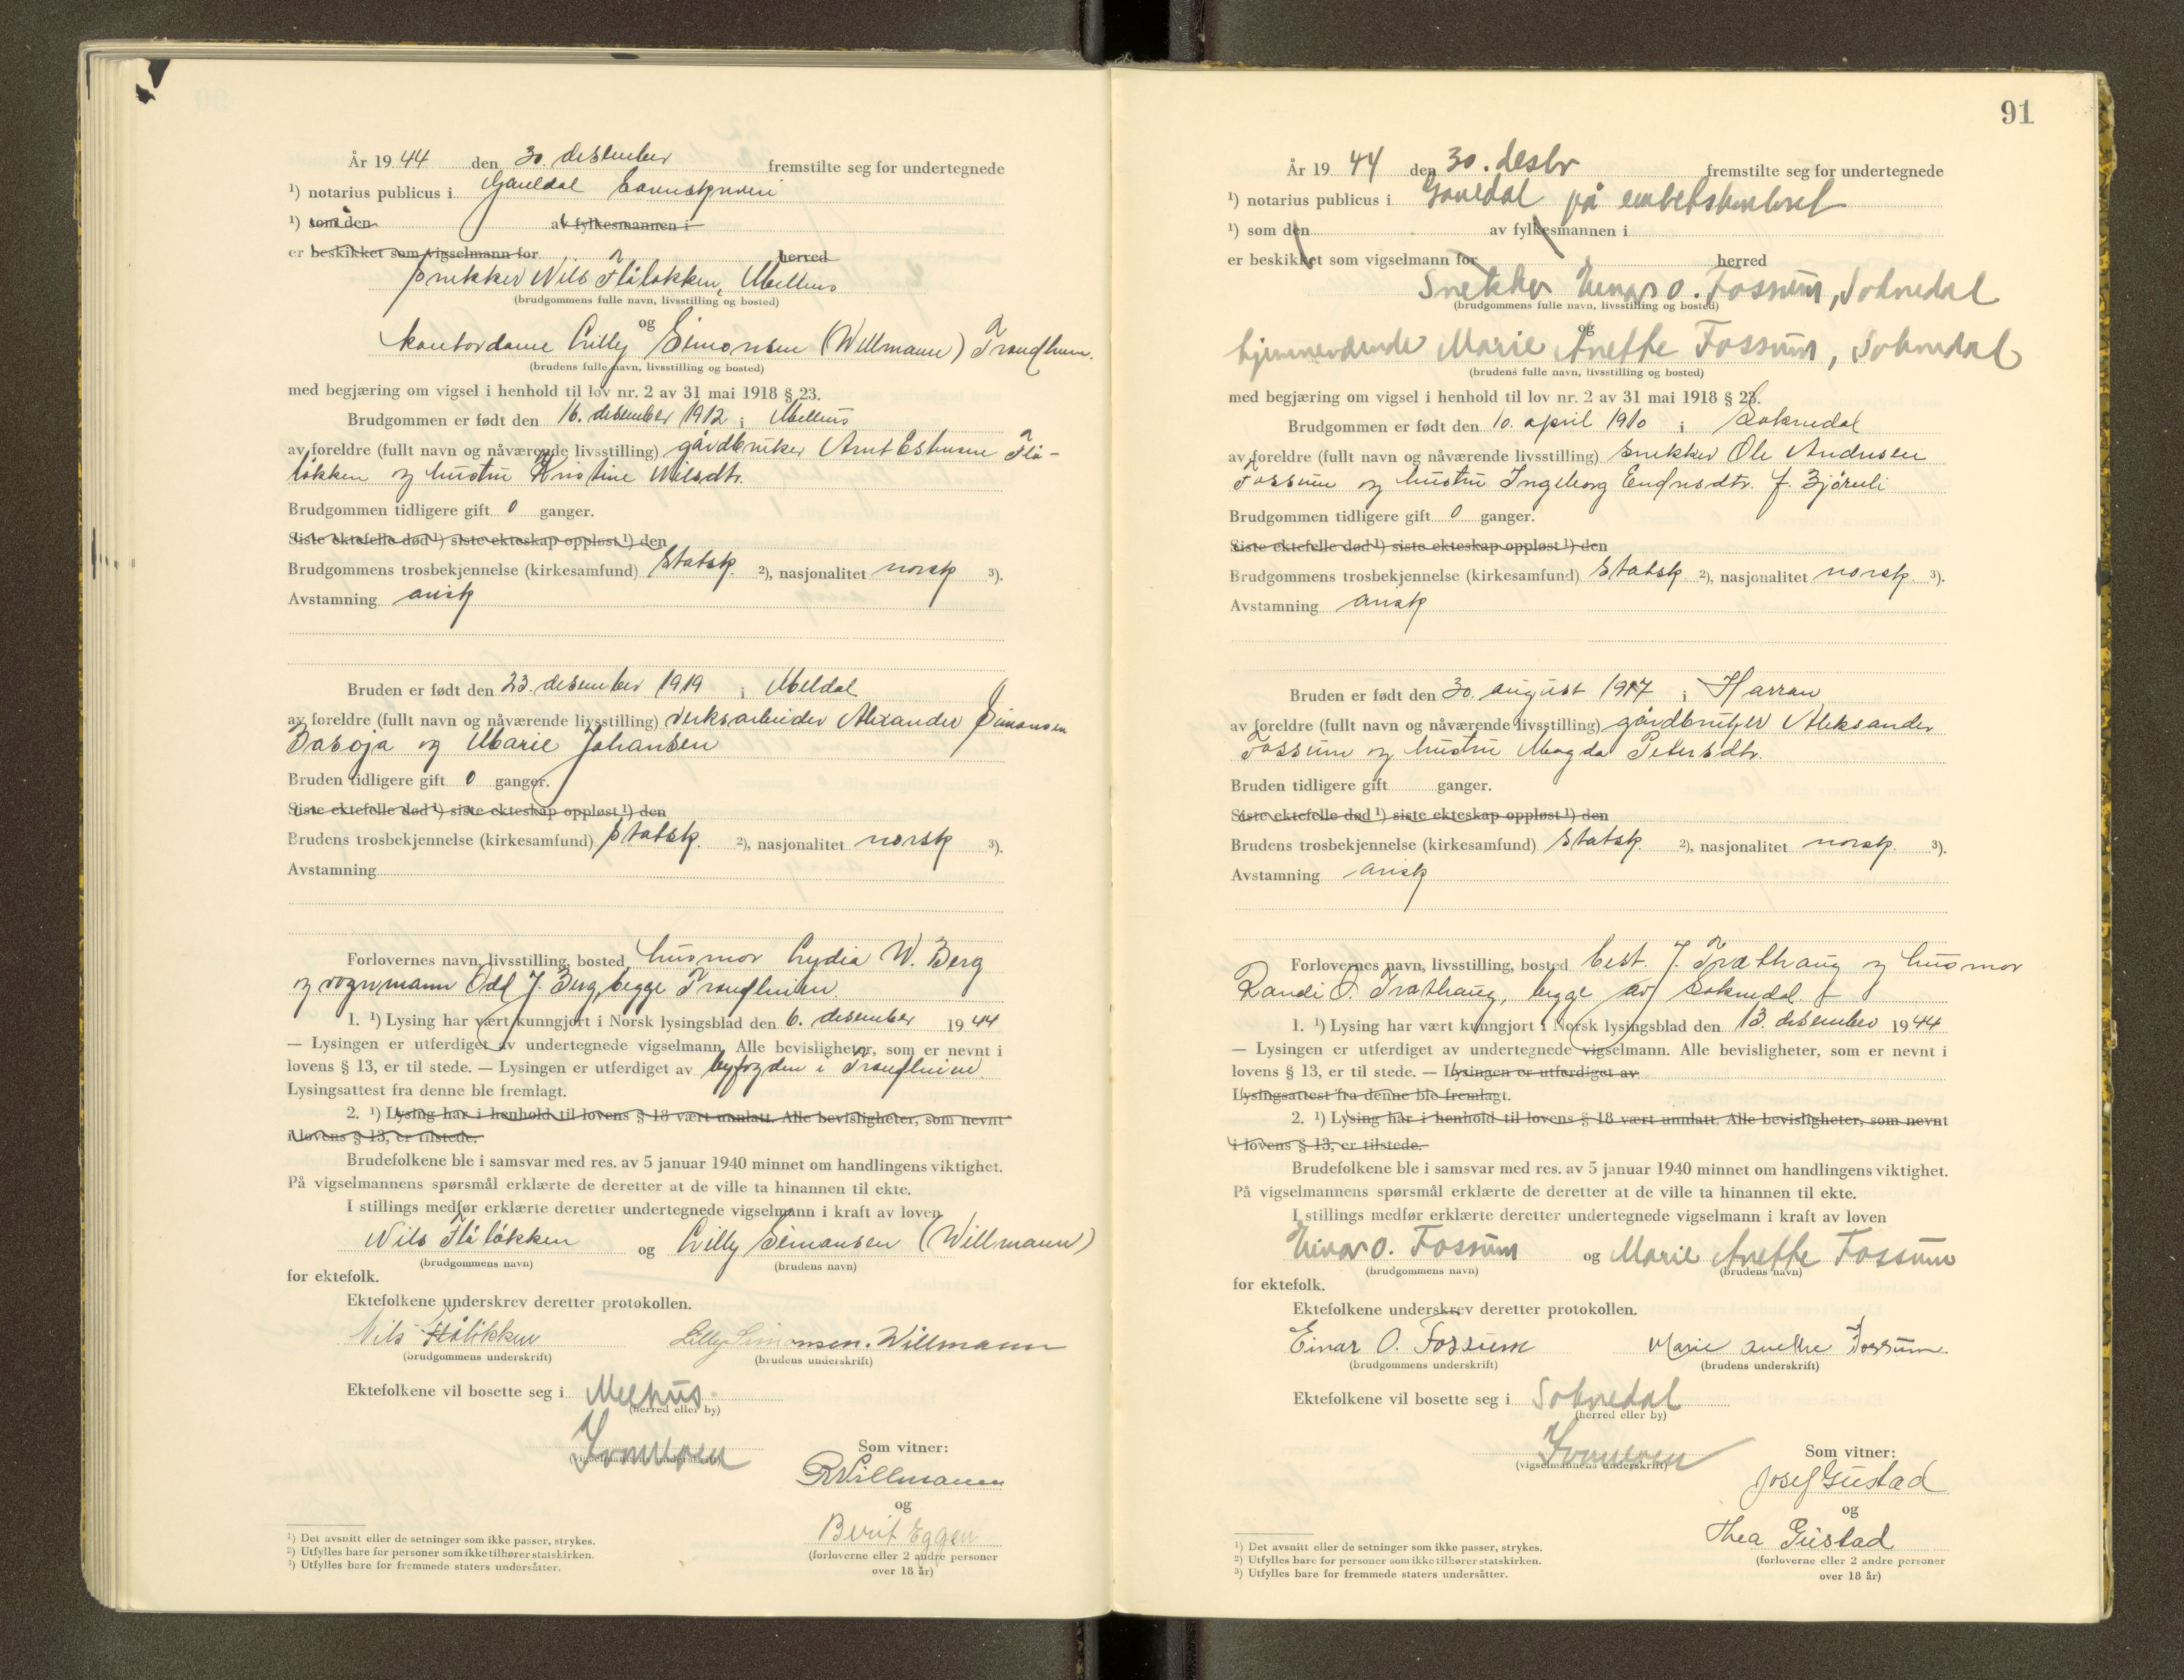 År 19 44 den 30. desember fremstilte seg for undertegnede
¹) notarius publicus i Gauldal sorenskriveri
¹) som den av fylkesmannen i
er beskikket som vigselmann for herred
snekker Nils Flåløkken, Melhus
(brudgommens fulle navn, livsstilling og bosted)
og
kontordame Lilly Simonsen (Willmann) Trondheim.
(brudens fulle navn, livsstilling og bosted)
med begjæring om vigsel i henhold til lov nr. 2 av 31 mai 1918 § 23.
Brudgommen er født den 16. desember 1912 i Melhus
av foreldre (fullt navn og nåværende livsstilling) gårdbruker Arnt Flå-
løkken og hustru Kristine Nilsdtr.
Brudgommen tidligere gift 0 ganger.
Siste ektefelle død ¹) siste ekteskap oppløst ¹) den
Brudgommens trosbekjennelse (kirkesamfund) statsk. ²), nasjonalitet norsk ³).
Avstamning arisk
Bruden er født den 23. desember 1919 i Meldal
av foreldre (fullt navn og nåværende livsstilling) verksarbeider Alexander Simonsen
og Marie Johansen
Bruden tidligere gift 0 ganger.
Siste ektefelle død ¹) siste ekteskap oppløst ¹) den
Brudens trosbekjennelse (kirkesamfund) statsk. ²), nasjonalitet norsk ³).
Avstamning
Forlovernes navn, livsstilling, bosted husmor Lydia W. Berg
og vognmann Odd J. Berg, begge Trondheim.
1. ¹) Lysing har vært kunngjort i Norsk lysingsblad den 6. desember 19 44
— Lysingen er utferdiget av undertegnede vigselmann. Alle bevisligheter, som er nevnt i
lovens § 13, er til stede. — Lysingen er utferdiget av byfogden i Trondheim.
Lysingsattest fra denne ble fremlagt.
2. ¹) Lysing har i henhold til lovens § 18 vært unnlatt. Alle bevisligheter, som nevnt
i lovens § 13, er tilstede.
Brudefolkene ble i samsvar med res. av 5 januar 1940 minnet om handlingens viktighet.
På vigselmannens spørsmål erklærte de deretter at de ville ta hinannen til ekte.
I stillings medfør erklærte deretter undertegnede vigselmann i kraft av loven
Nils Flåløkken og Lilly Simonsen (Willmann)
(brudgommens navn) (brudens navn)
for ektefolk.
Ektefolkene underskrev deretter protokollen.
Nils Flåløkken Lilly Simonsen. Willmann
(brudgommens underskrift) (brudens underskrift)
Ektefolkene vil bosette seg i Melhus.
(herred eller by)
(vigselmannens underskrift)
Som vitner:
R Willmann
og
Berit Eggen
(forloverne eller 2 andre personer
over 18 år)
¹) Det avsnitt eller de setninger som ikke passer, strykes.
²) Utfylles bare for personer som ikke tilhører statskirken.
³) Utfylles bare for fremmede staters undersåtter.
91
År 19 44 den 30. desbr fremstilte seg for undertegnede
¹) notarius publicus i Gauldal på embetskontoret
¹) som den av fylkesmannen i
er beskikket som vigselmann for herred
Snekker Einar O. Fossum, Soknedal
(brudgommens fulle navn, livsstilling og bosted)
og
hjemmeværende Marie Anethe Fossum, Soknedal
(brudens fulle navn, livsstilling og bosted)
med begjæring om vigsel i henhold til lov nr. 2 av 31 mai 1918 § 23.
Brudgommen er født den 10. april 1910 i Soknedal
av foreldre (fullt navn og nåværende livsstilling) snekker Ole Andersen
Fossum og hustru Ingeborg f.
Brudgommen tidligere gift 0 ganger.
Siste ektefelle død ¹) siste ekteskap oppløst ¹) den
Brudgommens trosbekjennelse (kirkesamfund) statsk ²), nasjonalitet norsk. ³).
Avstamning arisk
Bruden er født den 30. august 1917 i Harran
av foreldre (fullt navn og nåværende livsstilling) gårdbruker Aleksander
Fossum og hustru Magda Petersdtr.
Bruden tidligere gift ganger.
Siste ektefelle død ¹) siste ekteskap oppløst ¹) den
Brudens trosbekjennelse (kirkesamfund) statsk. ²), nasjonalitet norsk. ³).
Avstamning arisk
Forlovernes navn, livsstilling, bosted best. J. Træthaug og husmor
Randi O. Træthaug, begge av Soknedal.
1. ¹) Lysing har vært kunngjort i Norsk lysingsblad den 13. desember 19 44
— Lysingen er utferdiget av undertegnede vigselmann. Alle bevisligheter, som er nevnt i
lovens § 13, er til stede. — Lysingen er utferdiget av
Lysingsattest fra denne ble fremlagt.
2. ¹) Lysing har i henhold til lovens § 18 vært unnlatt. Alle bevisligheter, som nevnt
i lovens § 13, er tilstede.
Brudefolkene ble i samsvar med res. av 5 januar 1940 minnet om handlingens viktighet.
På vigselmannens spørsmål erklærte de deretter at de ville ta hinannen til ekte.
I stillings medfør erklærte deretter undertegnede vigselmann i kraft av loven
Einar O. Fossum og Marie Anethe Fossum
(brudgommens navn) (brudens navn)
for ektefolk.
Ektefolkene underskrev deretter protokollen.
Einar O. Fossum Marie Anethe Fossum.
(brudgommens underskrift) (brudens underskrift)
Ektefolkene vil bosette seg i Soknedal
(herred eller by)
(vigselmannens underskrift)
Som vitner:
Josef Gustad
og
Thea Gustad
(forloverne eller 2 andre personer
over 18 år)
¹) Det avsnitt eller de setninger som ikke passer, strykes.
²) Utfylles bare for personer som ikke tilhører statskirken.
³) Utfylles bare for fremmede staters undersåtter.